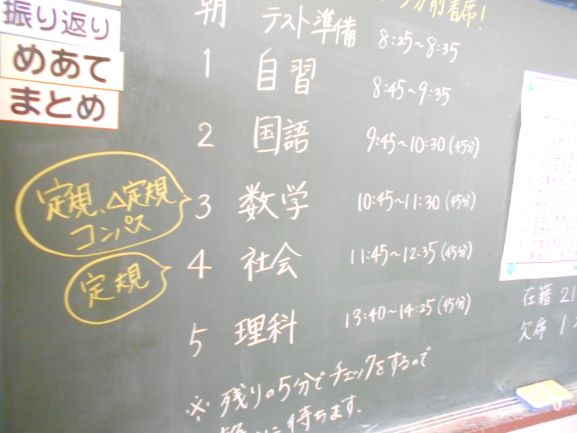 振り返り
めあて
まとめ
分前着席!
朝 テスト準備 8:25~8:35
1 自習 8:45~9:35
2 国語 9:45~10:30(45分)
定規、△定規
コンパス
3 数学 10:45~11:30(45分)
定規
4 社会 11:45~12:35(45分)
5 理科 13:40~14:25(45分)
在籍 21
欠席 1
※残りの5分でチェックをするので
に待ちます.